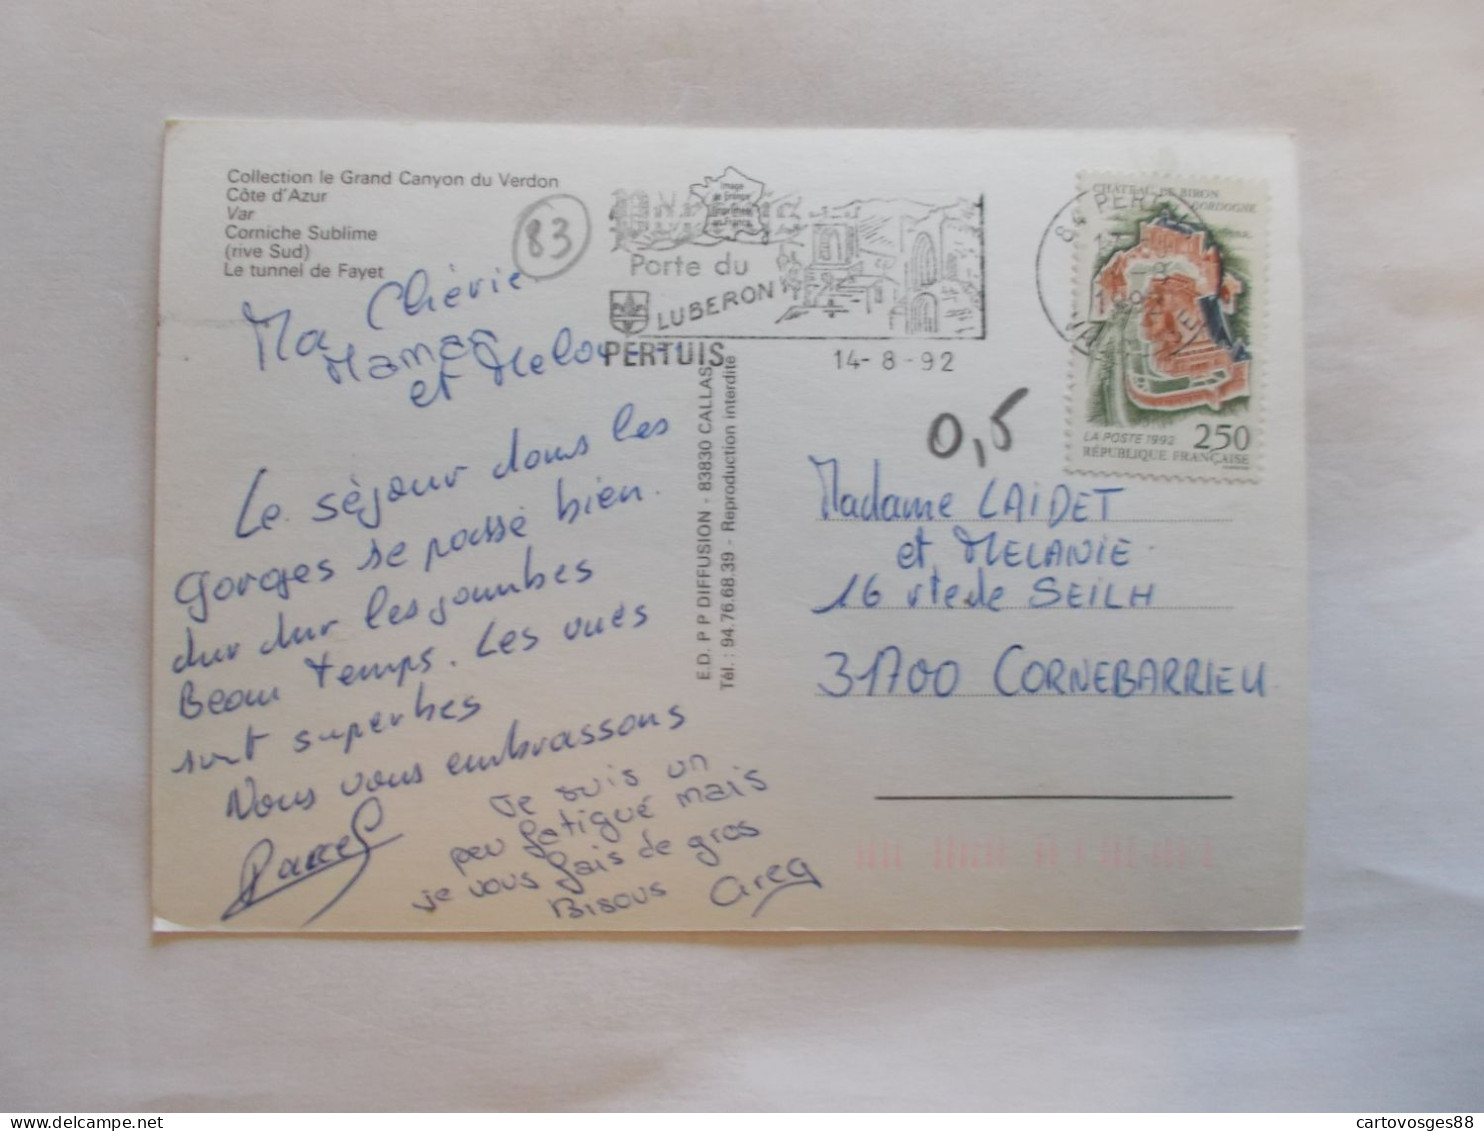 Collection le Grand Canyon du Verdon
Côte d'Azur
Var
Corniche Sublime
(rive Sud)
Le tunnel de Fayet
83
Ma Chérie
Maman
et Melou
Le séjour dans les
Gorges se passe bien.
dur dur les jambes
Beau temps. Les vues
sont superbes
Nous vous embrassons
Je suis un
peu fatigué mais
je vous fais de gros
Bisous Greg
E.D. P P DIFFUSION - 83830 CALLAS
Tél. : 94.76.68.39 - Reproduction interdite
Porte du
LUBERON
PERTUIS
14-8-92
84 PERTUIS
CHÂTEAU DE BIRON
DORDOGNE
LA POSTE 1992 2,50
RÉPUBLIQUE FRANÇAISE
0,5
Madame LAIDET
et MELANIE
16 rte de SEILH
31700 CORNEBARRIEU
cartovosges88